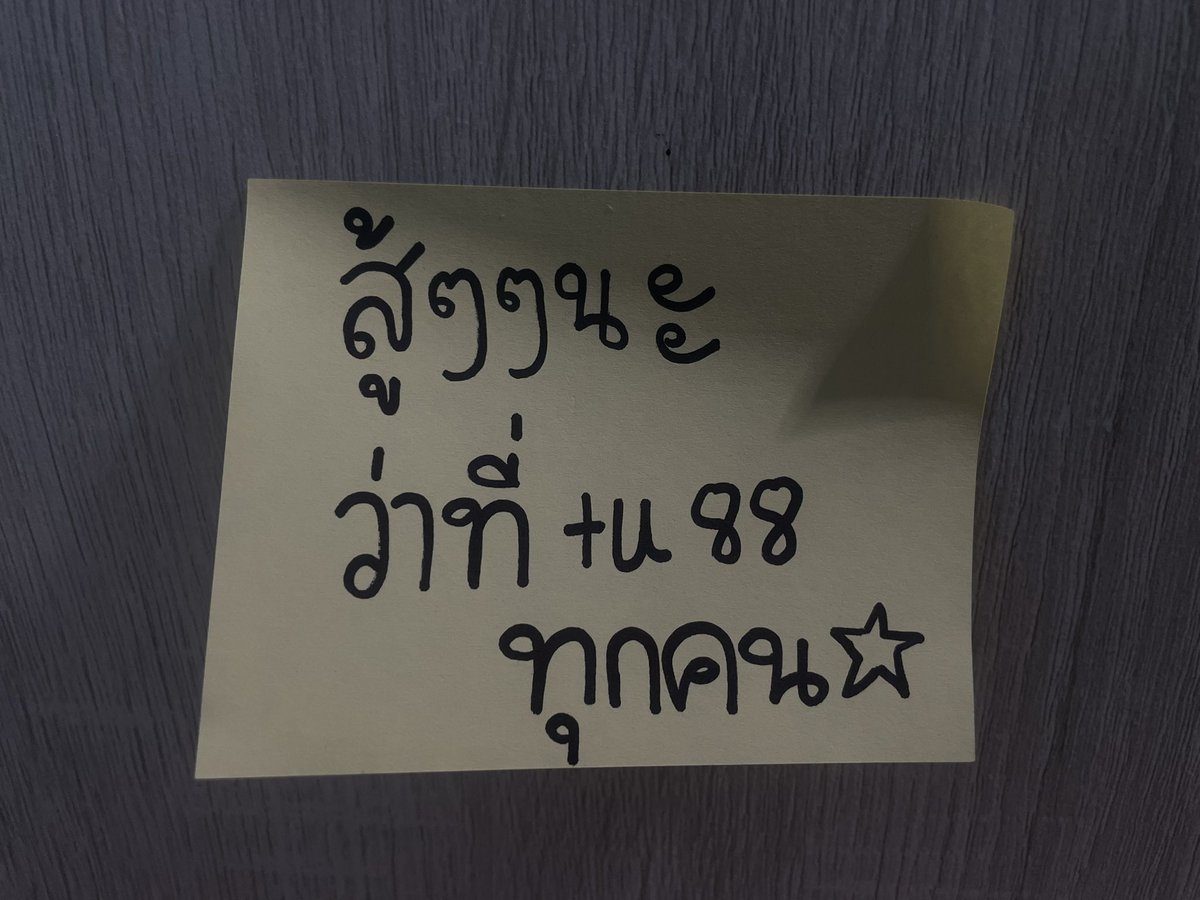 สู้ๆๆนะ
ว่าที่ tu 88
ทุกคน☆